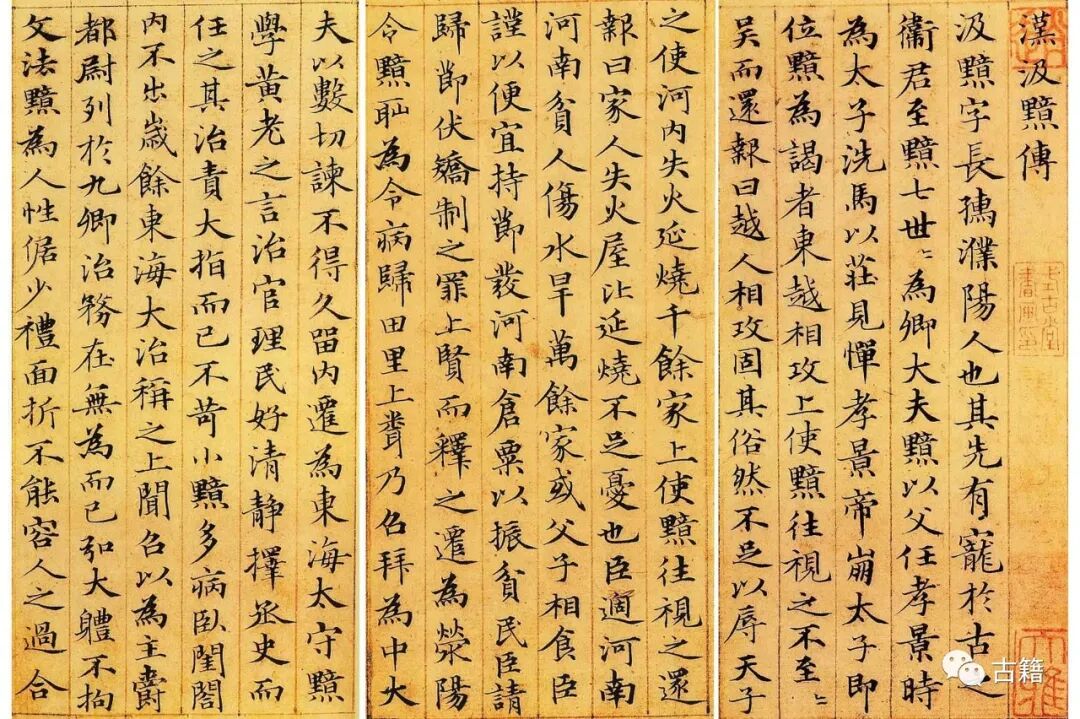 漢汲黯傳
汲黯字長孺濮陽人也其先有寵於古之
衞君至黯七世〻為卿大夫黯以父任孝景時
為太子洗馬以莊見憚孝景帝崩太子即
位黯為謁者東越相攻上使黯往視之不至〻
吳而還報曰越人相攻固其俗然不足以辱天子
之使河內失火延燒千餘家上使黯往視之還
報曰家人失火屋比延燒不足憂也臣適河南
河南貧人傷水旱萬餘家或父子相食臣
謹以便宜持節發河南倉粟以振貧民臣請
歸節伏矯制之罪上賢而釋之遷為滎陽
令黯恥為令病歸田里上聞乃召拜為中大
夫以數切諫不得久留內遷為東海太守黯
學黃老之言治官理民好清静擇丞史而
任之其治責大指而已不苛小黯多病臥閨閤
內不出歲餘東海大治稱之上聞召以為主爵
都尉列於九卿治務在無為而已弘大軆不拘
文法黯為人性倨少禮面折不能容人之過合
古籍